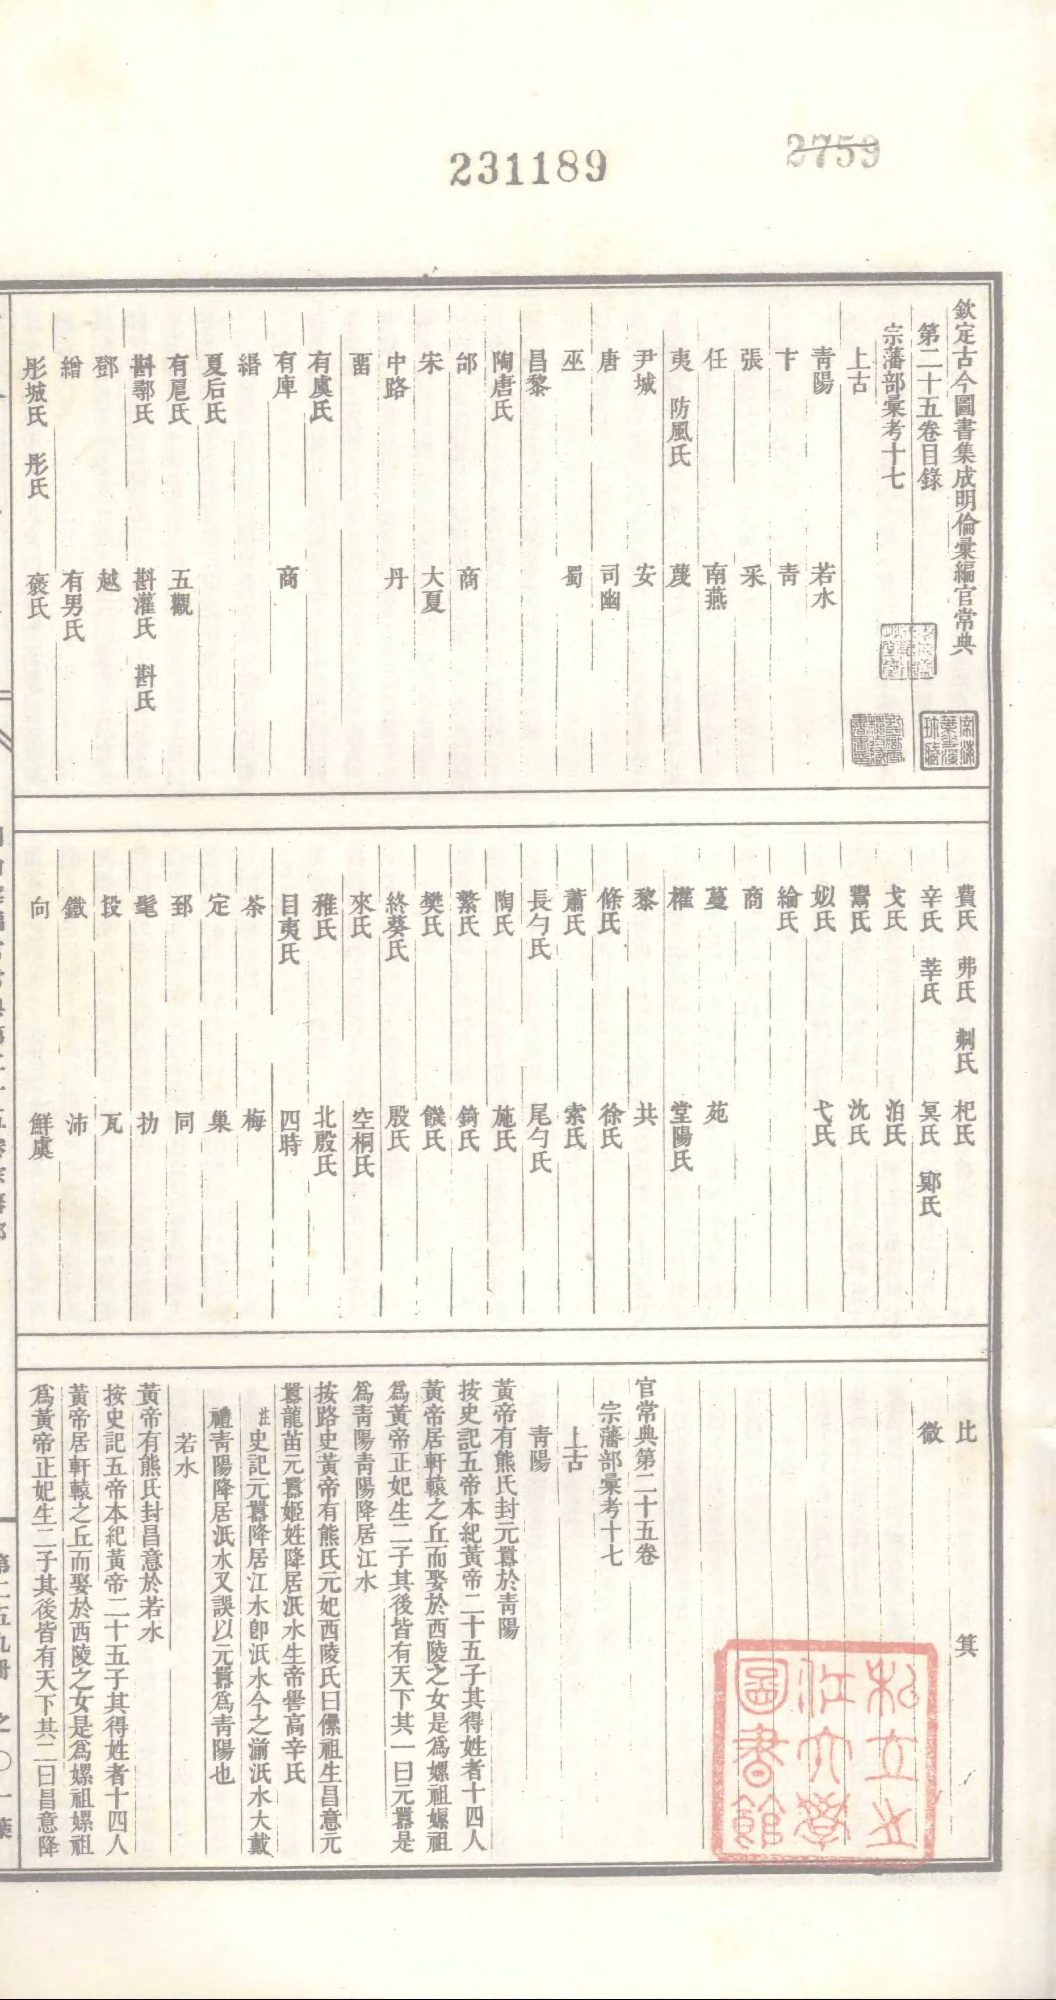 231189
2759
欽定古今圖書集成明倫彙編官常典
第二十五卷目錄
宗藩部彙考十七
上古
青陽 若水
卞 青
張 采
任 南燕
夷 防風氏 蔑
尹城 安
唐 司幽
巫 蜀
昌黎
陶唐氏
邰 商
宋 大夏
中路 丹
畱
有虞氏
有庳 商
緡
夏后氏
有扈氏 五觀
斟鄩氏 斟灌氏 斟氏
鄧 越
繒 有男氏
彤城氏 彤氏 褒氏
費氏 弗氏 剌氏 杞氏
辛氏 莘氏 冥氏 鄍氏
戈氏 泊氏
鬻氏 沈氏
姒氏 弋氏
綸氏
商
蔓 苑
權 堂陽氏
黎 共
條氏 徐氏
蕭氏 索氏
長勺氏 尾勺氏
陶氏 施氏
繁氏 錡氏
樊氏 饑氏
終葵氏 殷氏
來氏 空桐氏
稚氏 北殷氏
目夷氏 四時
茶 梅
定 巢
郅 同
髦 扐
段 瓦
鐵 沛
向 鮮虞
比 箕
微
官常典第二十五卷
宗藩部彙考十七
上古
青陽
黃帝有熊氏封元囂於青陽
按史記五帝本紀黃帝二十五子其得姓者十四人
黃帝居軒轅之丘而娶於西陵之女是為嫘祖嫘祖
為黃帝正妃生二子其後皆有天下其一曰元囂是
為青陽青陽降居江水
按路史黃帝有熊氏元妃西陵氏曰儽祖生昌意元
囂龍苗元囂姬姓降居泜水生帝嚳高辛氏
註史記元囂降居江水卽泜水今之湔泜水大戴
禮青陽降居泜水又誤以元囂為青陽也
若水
黃帝有熊氏封昌意於若水
按史記五帝本紀黃帝二十五子其得姓者十四人
黃帝居軒轅之丘而娶於西陵之女是為嫘祖嫘祖
為黃帝正妃生二子其後皆有天下其二曰昌意降
私立之江大學圖書館